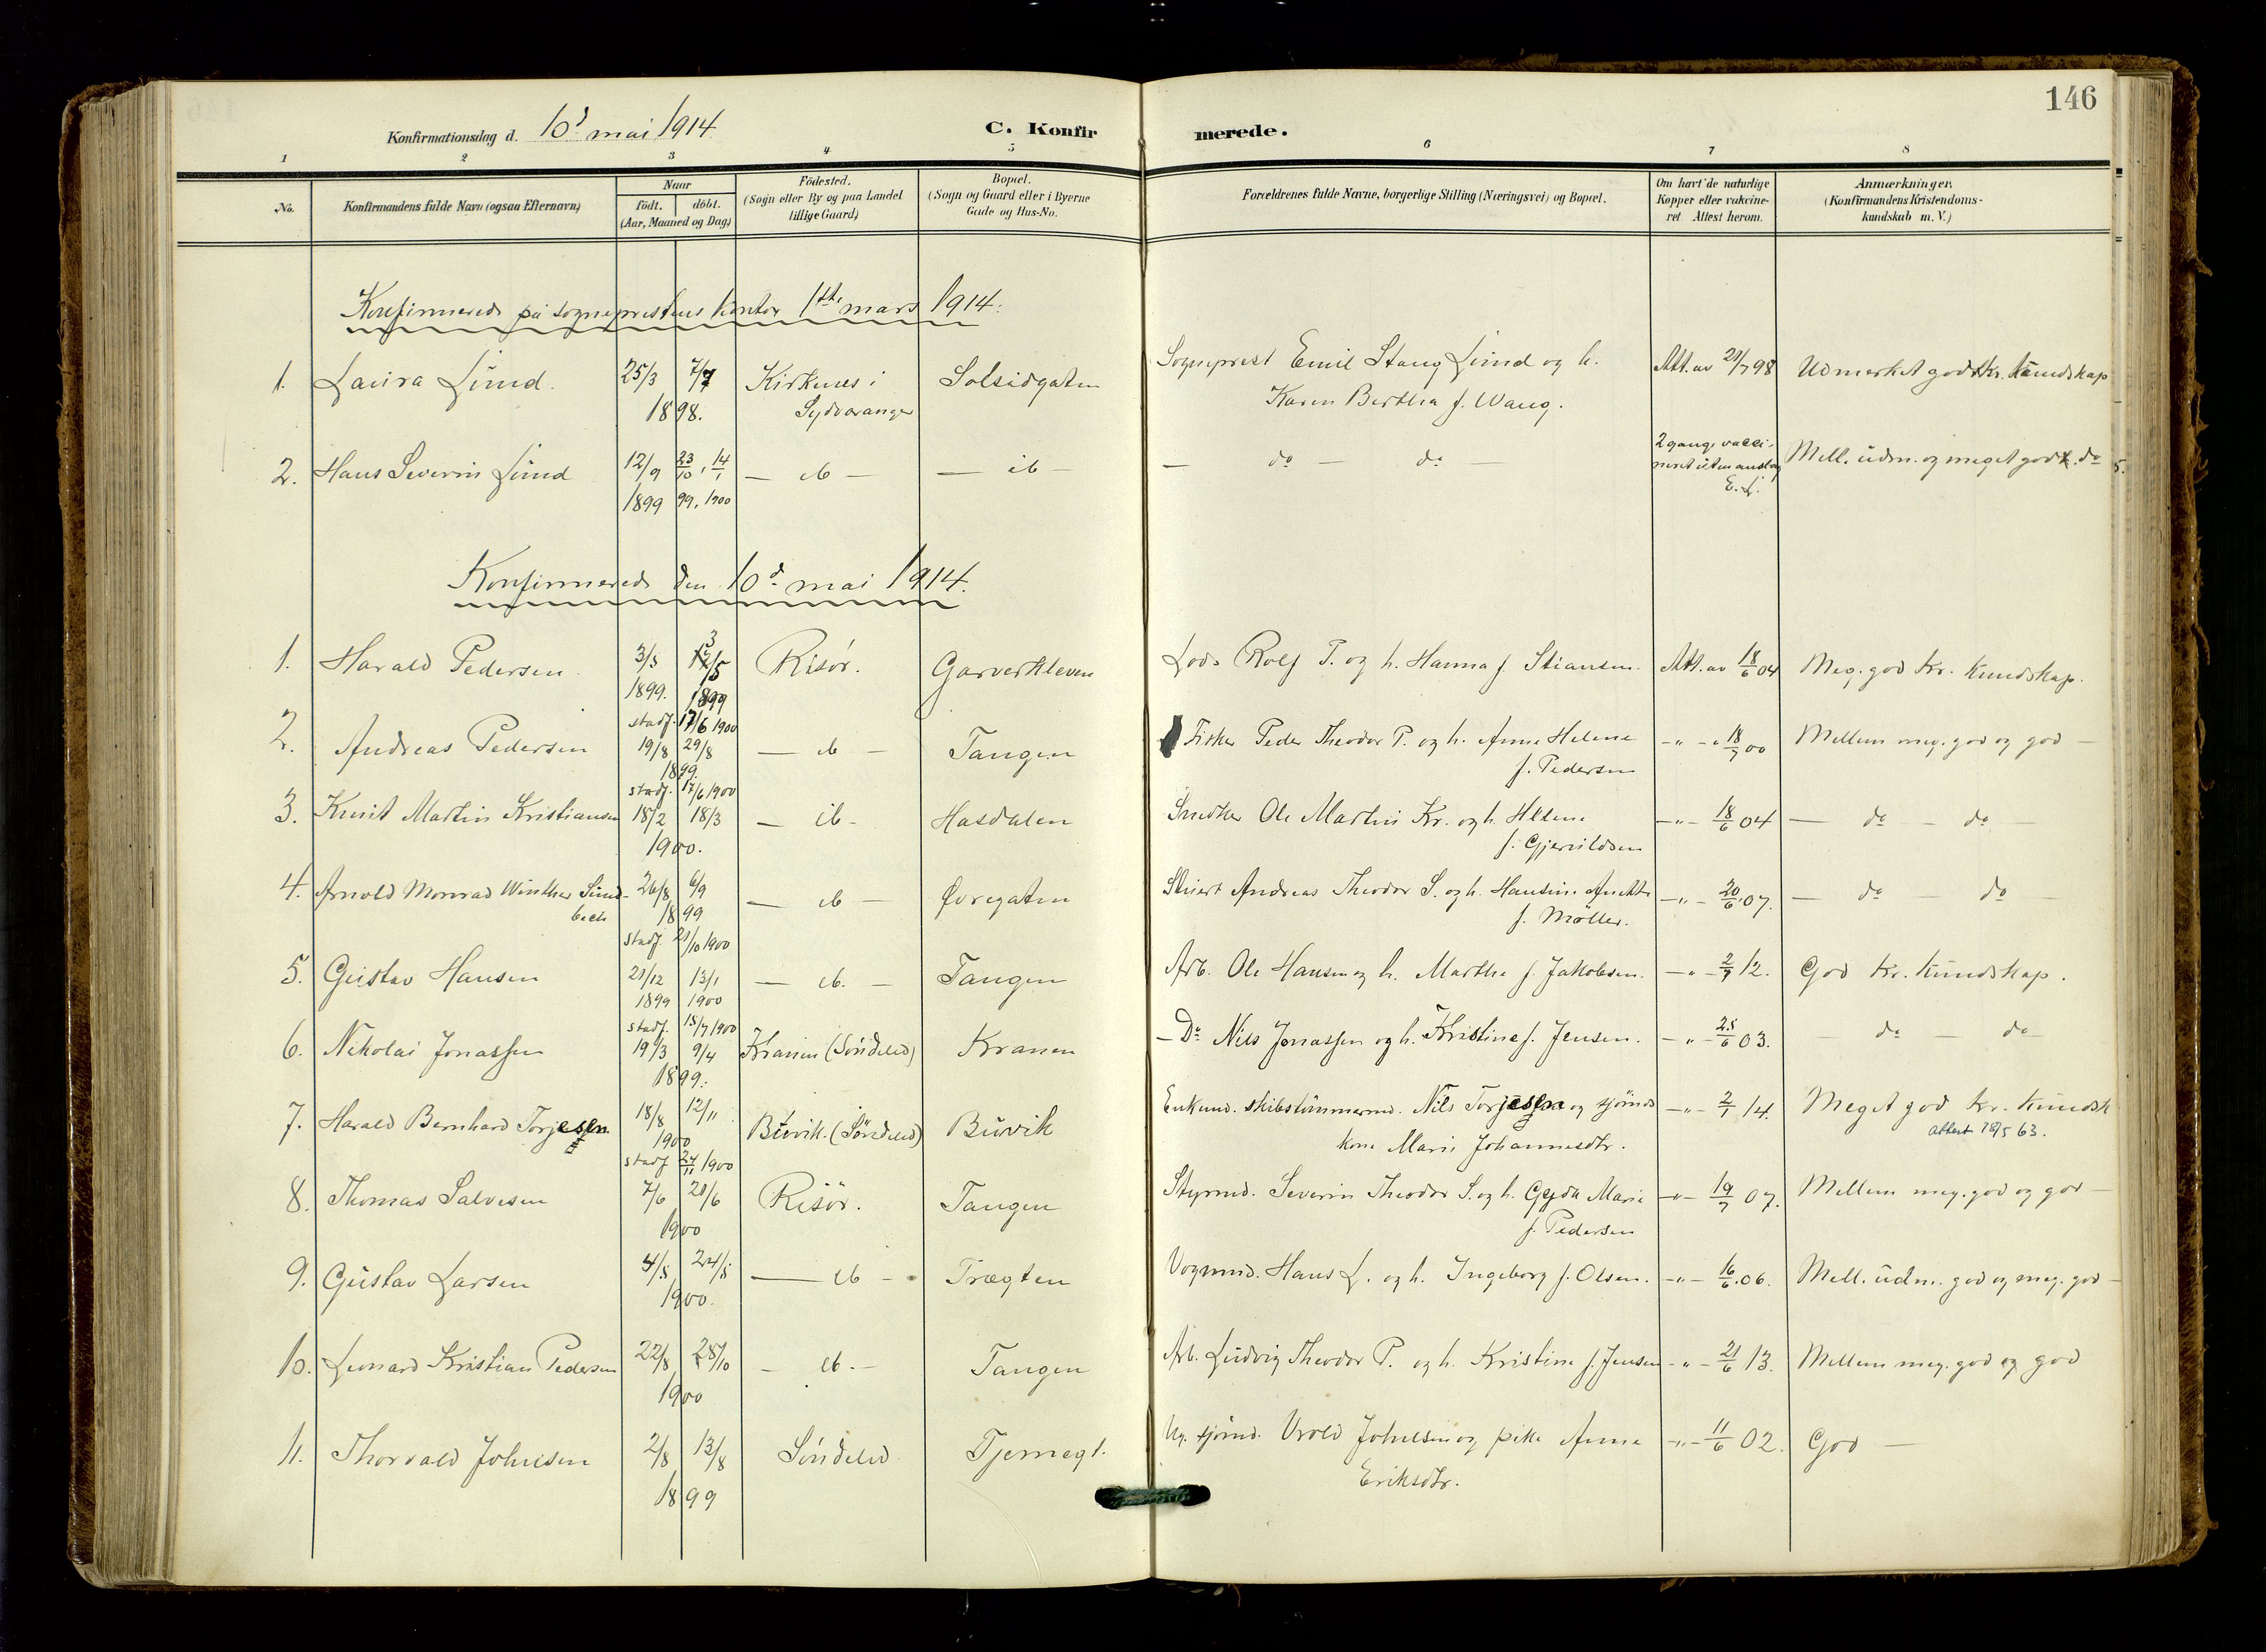 146
Konfirmationsdag d. 10d mai 1914. C. Konfirmerede.
1 2 3 4 5 6 7 8
No. Konfirmandens fulde Navn (ogsaa Efternavn) Naar Födt. döbt. (Aar, Maaned og Dag) Födested. (Sogn eller By og paa Landet tillige Gaard) Bopæl. (Sogn og Gaard eller i Byerne Gade og Hus-No. Forældrenes fulde Navne, borgerlige Stilling (Næringsvei) og Bopæl. Om havt de naturlige Kopper eller vakcineret Attest herom. Anmærkninger. (Konfirmandens Kristendomskundskab m. V.)
Konfirmerede på sogneprestens kontor 1ste mars 1914.
1. Laura Lund. 25/3 7/7 Kirkenes i Solsidgaten Sogneprest Emil Stang Lund og h. Att. av 21/7 98 Udmerket god kr. kundskap
1898. Sydvaranger Karen Bertha f. Wang.
2. Hans Severin Lund 12/9 23/10, 14/1 — ib — — ib — — do — do — 2 gange vacci- Mell. udm. og meget god. do
1899 99. 1900 neret uten anslag
E. L.
Konfirmerede den 10d mai 1914.
1. Harald Pedersen 3/3 Risör. Garverkleven Lods Rolf P. og h. Hanna f. Stiansen. Att. av 18/6 04 Meg. god kr. kundskap.
1899. 1899
stadf. 17/6 1900
2. Andreas Pedersen 19/8 29/8 — ib — Tangen Fisker Peder Theodor P. og h. Anne Helene — " — 18/7 00 Mellem meg. god og god —
1899. f. Pedersen
stadf. 17/6 1900
3. Knut Martin Kristiansen 18/2 18/3 — ib — Hasdalen Snedker Ole Martin Kr. og h. Helene — " — 18/6 04 — do — do —
1900. f. Gjeruldsen
4. Arnold Monrad Winther Sund- 26/8 6/9 — ib — Øvregaten Stuert Andreas Theodor S. og h. Hansine Anette — " — 20/6 07. — do — do —
bech 1899 f. Möller.
stadf. 21/10 1900
5. Gustav Hansen 21/12 13/1 — ib. — Tangen Arb. Ole Hansen og h. Marthe f. Jakobsen. — " — 2/7 12. God kr. kundskap.
1899 1900
stadf. 15/7 1900
6. Nikolai Jonassen 19/3 9/4 Kranen (Söndeled) Kranen — Do Nils Jonassen og h. Kristine f. Jensen. — " — 25/6 03. — do — do —
1899.
7. Harald Bernhard Torjesen. 18/8 12/11 Buvik. (Söndeled) Buvik Enkemd. skibstömmermd. Nils Torjesen og sjömds — " — 2/1 14. Meget god kr. kundsk
1900 kone Marie Johannesdtr. attest 28/5 63.
stadf 24/11 1900
8. Thomas Salvesen 7/6 21/6 Risör. Tangen Styrmd. Severin Theodor S. og h. Gejda Marie — " — 19/7 07. Mellem meg. god og god —
1900 f. Pedersen
9. Gustav Larsen 4/5 24/5 — ib — Trægten Vognmd. Hans L. og h. Ingeborg f. Olsen. — " — 16/6 06. Mell. udm. god og meg. god —
1900.
10. Leonard Kristian Pedersen 22/8 28/10 — ib. — Tangen Arb. Ludvig Theodor P. og h. Kristine f. Jensen — " — 21/6 13. Mellem meg. god og god
1900
11. Thorvald Johnsen 2/8 13/8 Söndeled Tjernegt. Ug. sjömd. Vrold Johnsen og pike Anne — " — 11/6 02. God —
1899 Eriksdtr.